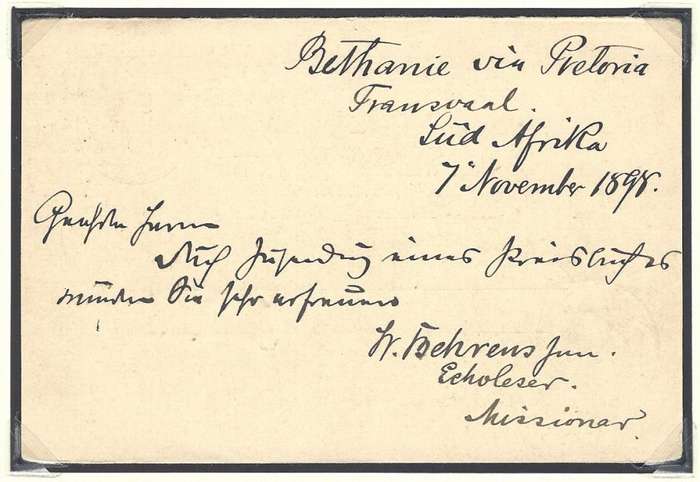 Bethanie via Pretoria
Transvaal.
Süd Afrika
7 November 1898.
Geehrte Herrn
Durch Zusendung eines Preisbuches
würden Sie sehr erfreuen
W. Behrens jun.
Missionar.